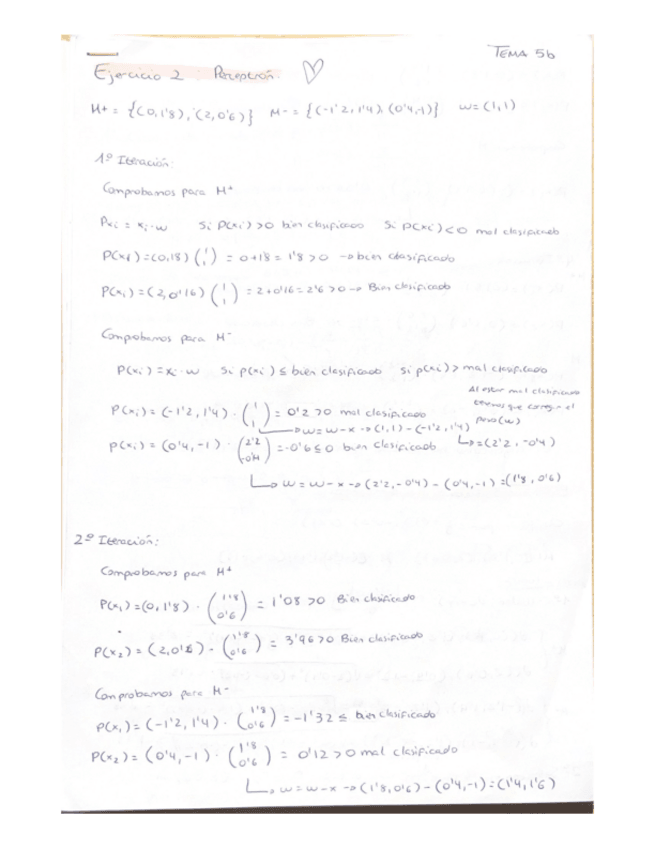 TEMA 5b
Ejercicio 2 : Percepción. ♡
M+ = {(0,1'8), (2,0'6)} M- = {(-1'2, 1'4), (0'4,-1)} w=(1,1)
1º Iteración:
Comprobamos para M+
Pxi = xi·w Si P(xi)>0 bien clasificado Si P(xi)<0 mal clasificado
P(x1)=(0,1'8) (1 1) = 0+1'8 = 1'8 >0 → bien clasificado
P(xi)=(2,0'16) (1 1) = 2+0'16=2'6>0 → Bien clasificado
Comprobamos para M-
P(xi)=xi·w Si p(xi) ≤ bien clasificado Si p(xi)> mal clasificado
Al estar mal clasificado
tenemos que corregir el
peso(w)
P(xi)=(-1'2, 1'4) · (1 1) = 0'2 >0 mal clasificado
↳ w=w-x → (1,1) - (-1'2, 1'4)
↳=(2'2, -0'4)
P(xi)=(0'4, -1) · (2'2 -0'4) =-0'6≤0 bien clasificado
↳ w = w-x → (2'2, -0'4) - (0'4, -1) =(1'8, 0'6)
2º Iteración:
Comprobamos para M+
P(x1)=(0, 1'8) · (1'8 0'6) = 1'08 >0 Bien clasificado
P(x2)=(2,0'6) · (1'8 0'6) = 3'96>0 Bien clasificado
Comprobamos para M-
P(x1)=(-1'2, 1'4) · (1'8 0'6) =-1'32 ≤ bien clasificado
P(x2)=(0'4, -1) · (1'8 0'6) = 0'12 >0 mal clasificado
↳ w=w-x → (1'8, 0'6) - (0'4, -1)=(1'4, 1'6)